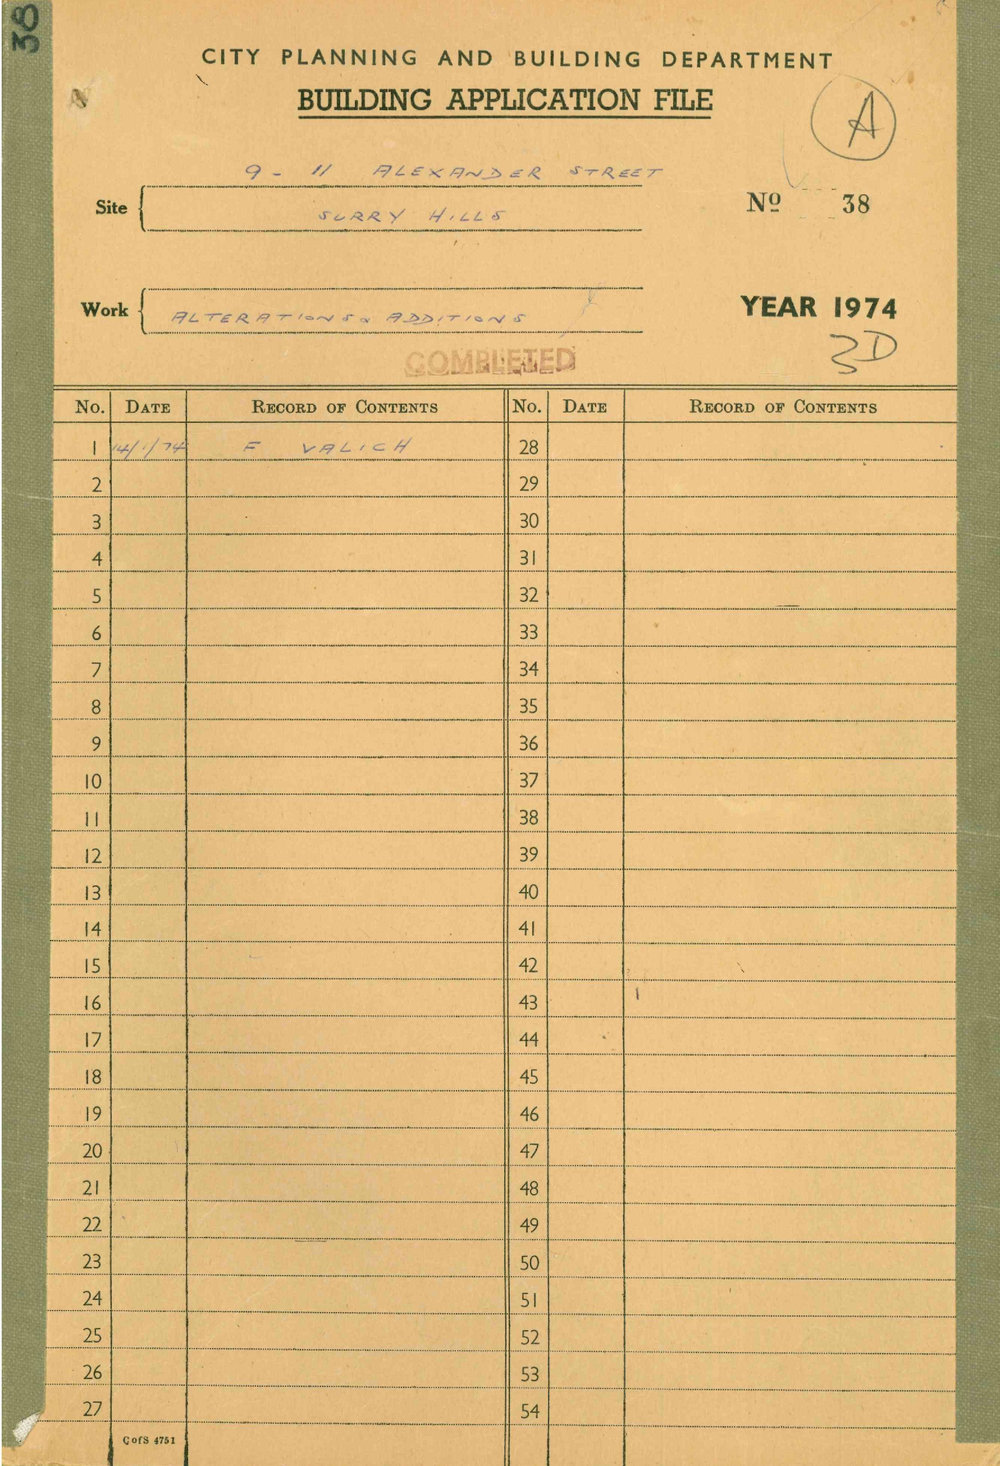 38
CITY PLANNING AND BUILDING DEPARTMENT
BUILDING APPLICATION FILE
A
9 - 11 ALEXANDER STREET
Site
SURRY HILLS
Nº 38
Work
ALTERATIONS & ADDITIONS
YEAR 1974
3D
COMPLETED
No. DATE RECORD OF CONTENTS No. DATE RECORD OF CONTENTS
1 14/1/74 F VALICH 28
2 29
3 30
4 31
5 32
6 33
7 34
8 35
9 36
10 37
11 38
12 39
13 40
14 41
15 42
16 43
17 44
18 45
19 46
20 47
21 48
22 49
23 50
24 51
25 52
26 53
27 54
C of S 4751